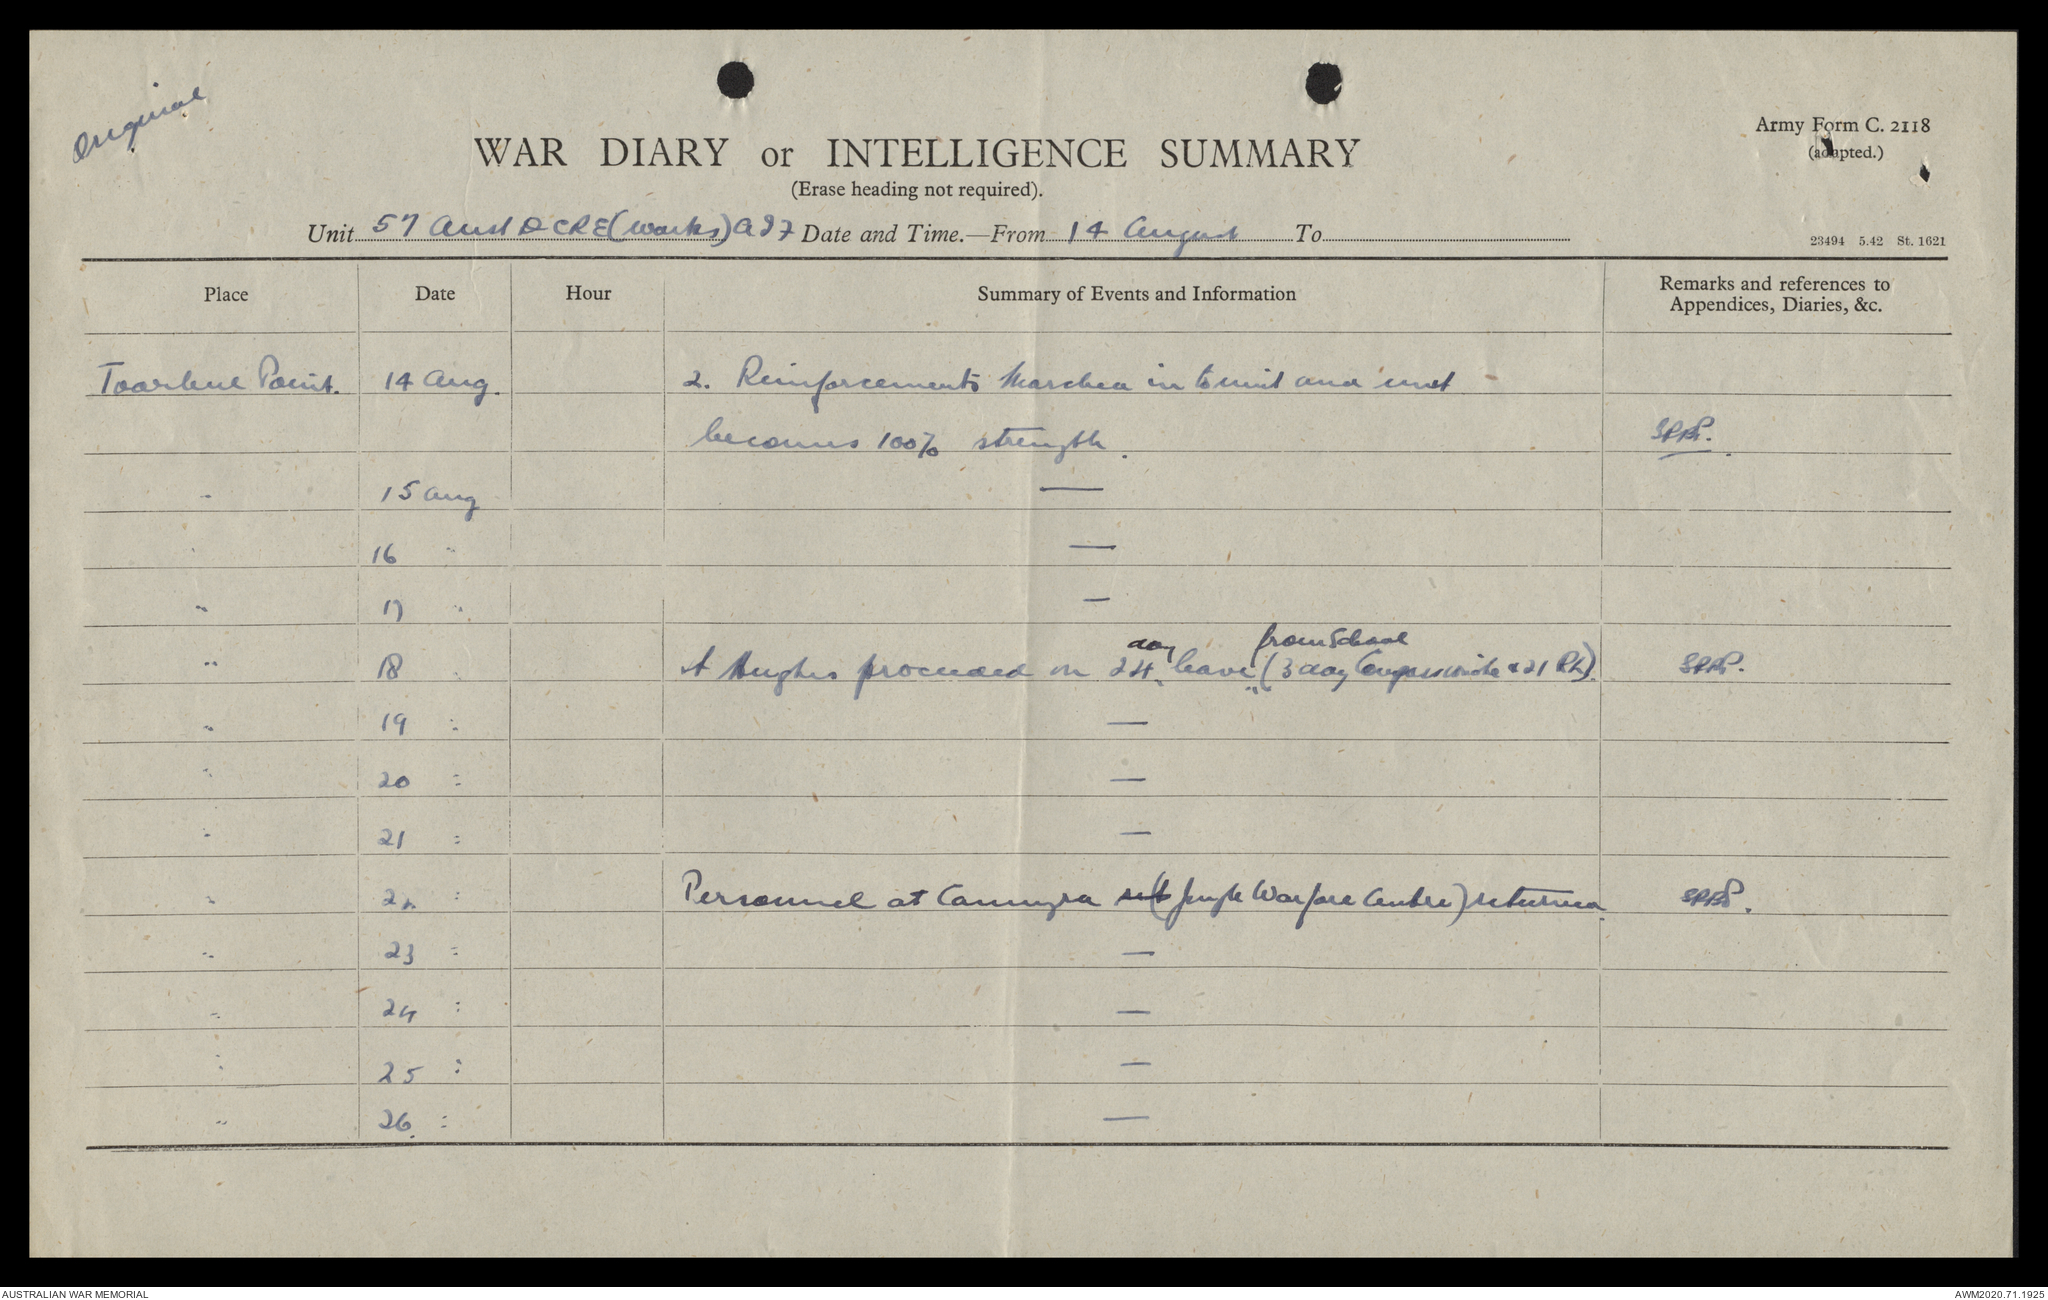 Original
Army Form C. 2118
(adapted.)
WAR DIARY or INTELLIGENCE SUMMARY
(Erase heading not required).
Unit 57 Aust DCRE (Works) AIF Date and Time.—From 14 August To
23494 5.42 St. 1621
Place Date Hour Summary of Events and Information Remarks and references to Appendices, Diaries, &c.
Point. 14 Aug. 2. Reinforcements Marched in to unit and unit
becomes 100% strength.
" 15 Aug —
" 16 " —
" 17 " —
day from School
" 18 " Hughes proceeded on 24 leave (3 day Compassionate & 21 RL).
" 19 " —
" 20 " —
" 21 " —
" 22 " Personnel at Canungra (Jungle Warfare Centre) returned.
" 23 " —
" 24 " —
" 25 " —
" 26 " —
AUSTRALIAN WAR MEMORIAL
AWM2020.71.1925